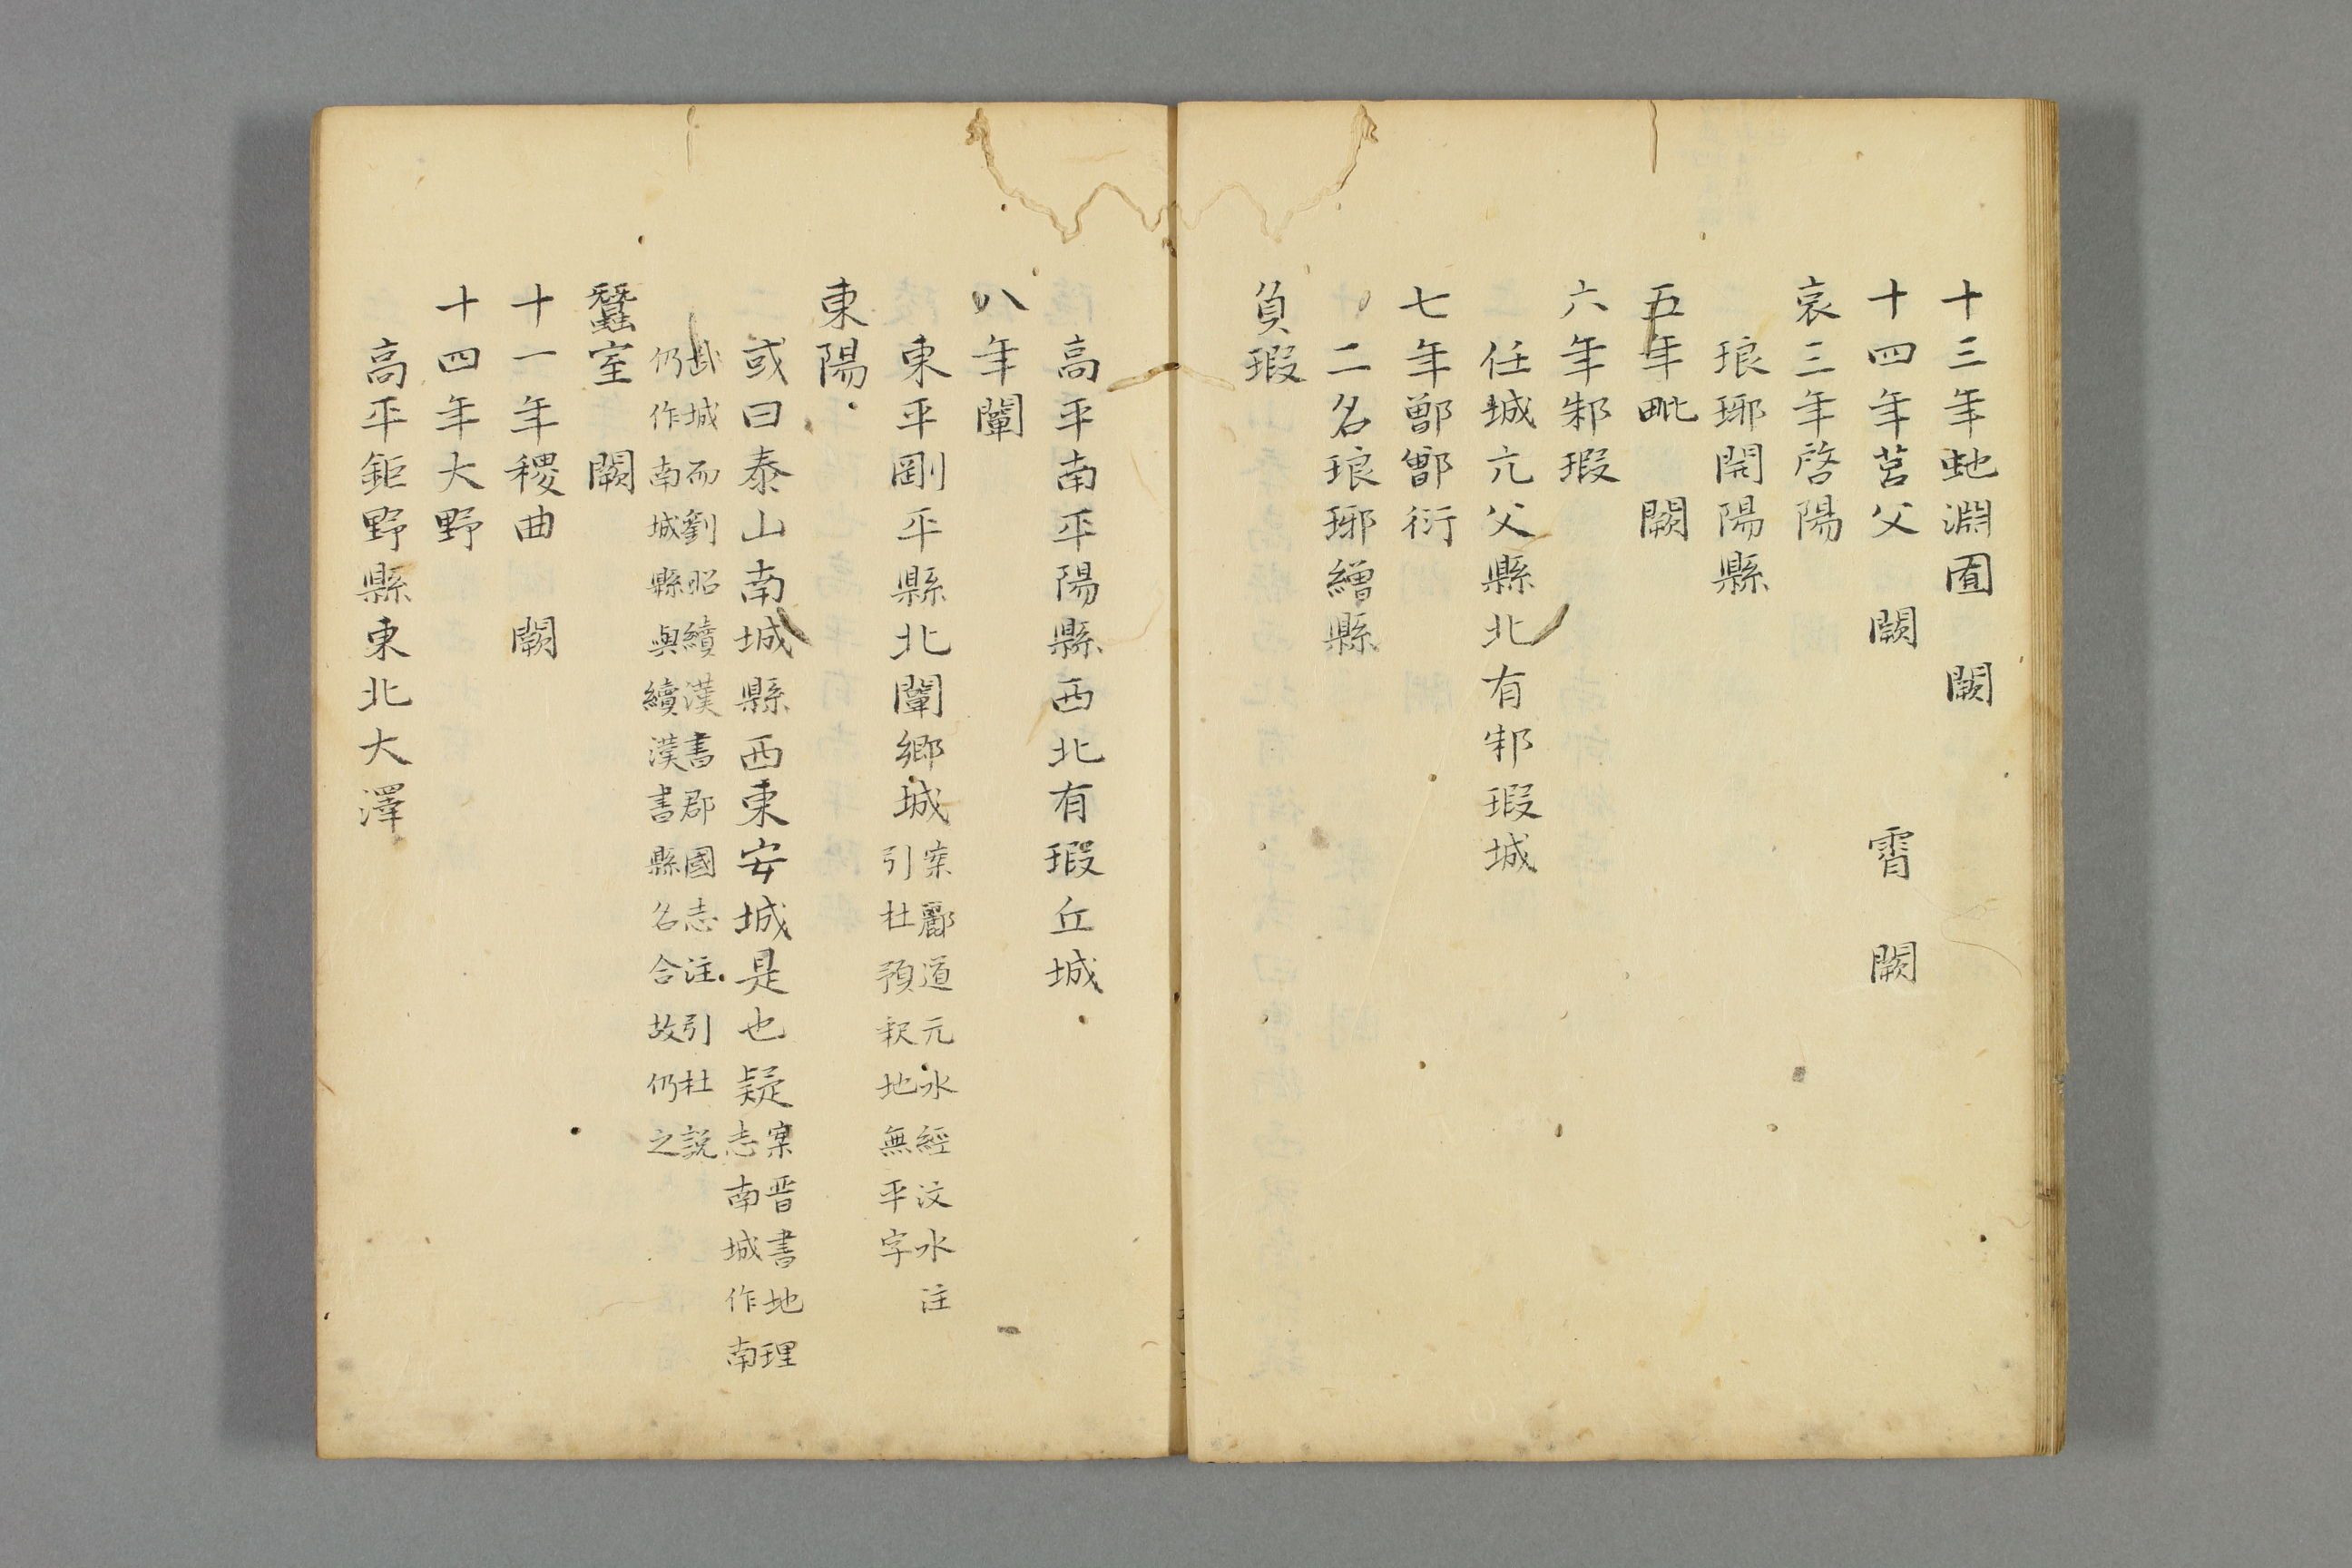 十三年虵淵囿　闕
十四年莒父　闕　霄　闕
哀三年啓陽
琅琊開陽縣
五年毗　闕
六年邾瑕
任城亢父縣北有邾瑕城
七年鄫鄫衍
二名琅琊繒縣
負瑕
高平南平陽縣西北有瑕丘城
八年闡
東平剛平縣北闡鄉城案酈道元水經汶水注引杜預釈地無平字
東陽
或曰泰山南城縣西東安城是也疑案晋書地理志南城作南
武城而劉昭續漢書郡國志注引杜説仍作南城縣與續漢書縣名合故仍之
蠶室　闕
十一年稷曲　闕
十四年大野
高平鉅野縣東北大澤